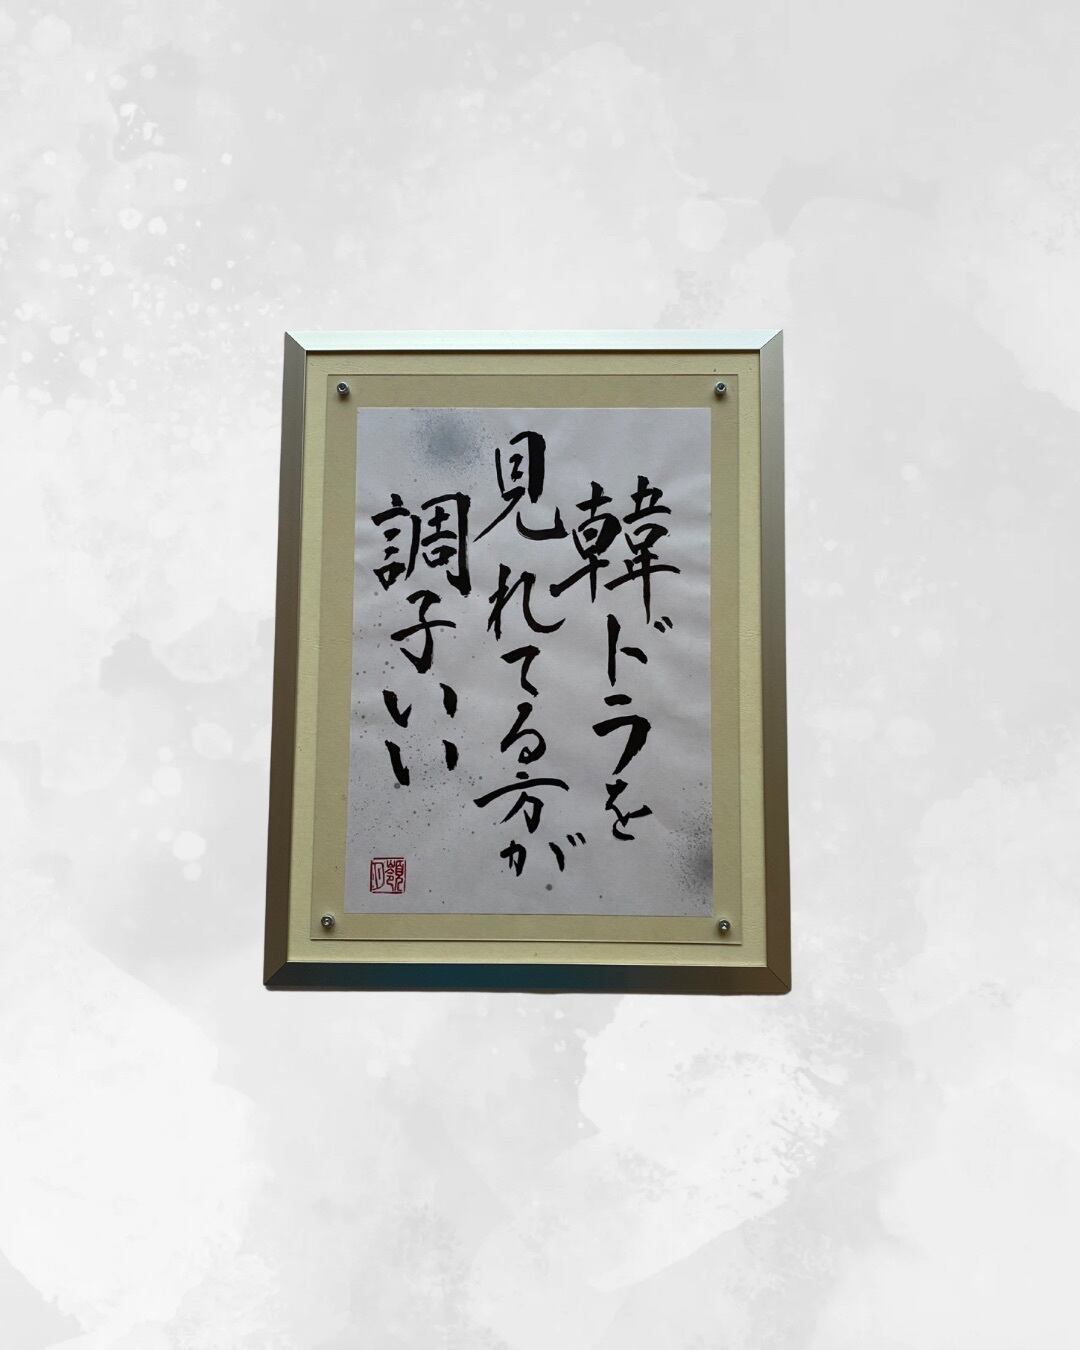 韓ドラを
見れてる方が
調子いい